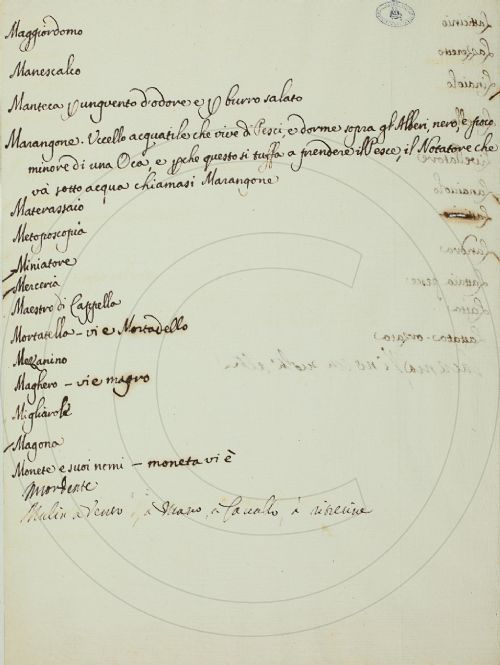 Maggiordomo
Manescalco
Manteca p unguento d'odore e p burro salato
Marangone. Uccello acquatile che vive di Pesci, e dorme sopra gl'Alberi, nero, e poco
minore di una Oca, e pche questo si tuffa a prendere il Pesce, il Notatore che
và sotto acqua chiamasi Marangone
Materassaio
Metoposcopia
Miniatore
Merceria
Maestro di Cappella
Mortatella - vi è Mortadello
Mezzanino
Maghero - vi è magro
Magona
Monete e suoi nomi - moneta vi è
Mordente
Mulin a Vento, à Mano, a Cavallo, à